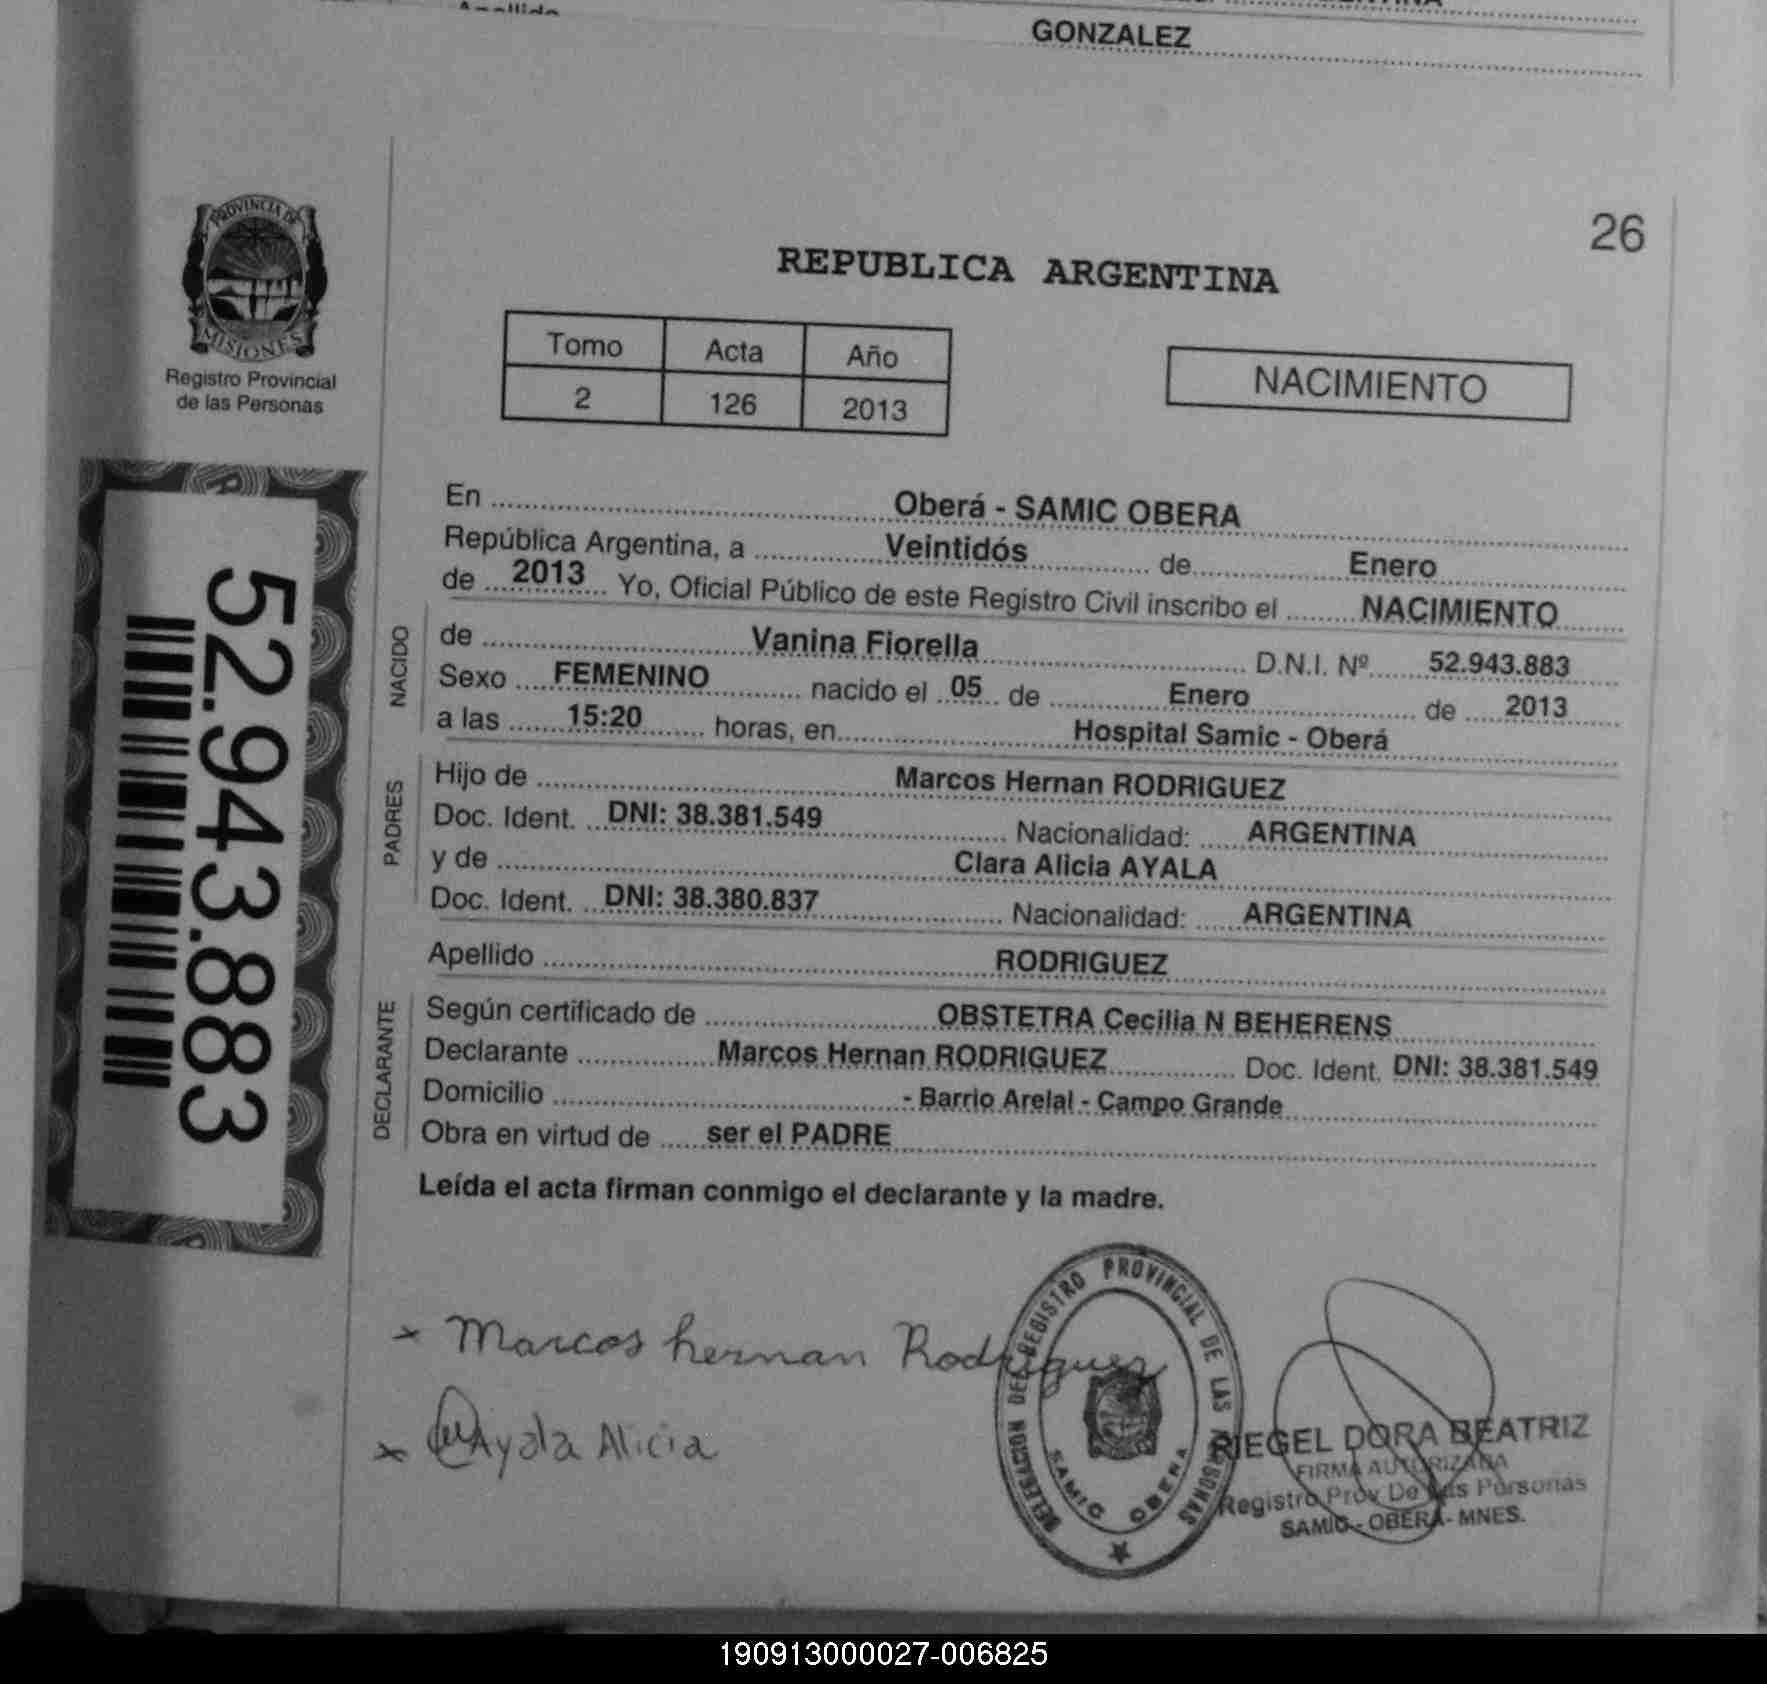 Apellido
GONZALEZ
26
PROVINCIA DE
MISIONES
Registro Provincial
de las Personas
REPUBLICA ARGENTINA
Tomo Acta Año
2 126 2013
NACIMIENTO
52.943.883
En Oberá - SAMIC OBERA
República Argentina, a Veintidós de Enero
de 2013 Yo, Oficial Público de este Registro Civil inscribo el NACIMIENTO
NACIDO
de Vanina Fiorella D.N.I. Nº 52.943.883
Sexo FEMENINO nacido el 05 de Enero de 2013
a las 15:20 horas, en Hospital Samic - Oberá
PADRES
Hijo de Marcos Hernan RODRIGUEZ
Doc. Ident. DNI: 38.381.549 Nacionalidad: ARGENTINA
y de Clara Alicia AYALA
Doc. Ident. DNI: 38.380.837 Nacionalidad: ARGENTINA
Apellido RODRIGUEZ
DECLARANTE
Según certificado de OBSTETRA Cecilia N BEHERENS
Declarante Marcos Hernan RODRIGUEZ Doc. Ident. DNI: 38.381.549
Domicilio - Barrio Arelal - Campo Grande
Obra en virtud de ser el PADRE
Leída el acta firman conmigo el declarante y la madre.
x Marcos hernan Rodriguez
x Ayala Alicia
DELEGACION DEL REGISTRO PROVINCIAL DE LAS PERSONAS
SAMIC OBERA
RIEGEL DORA BEATRIZ
FIRMA AUTORIZADA
Registro Prov De Las Personas
SAMIC - OBERA - MNES.
190913000027-006825